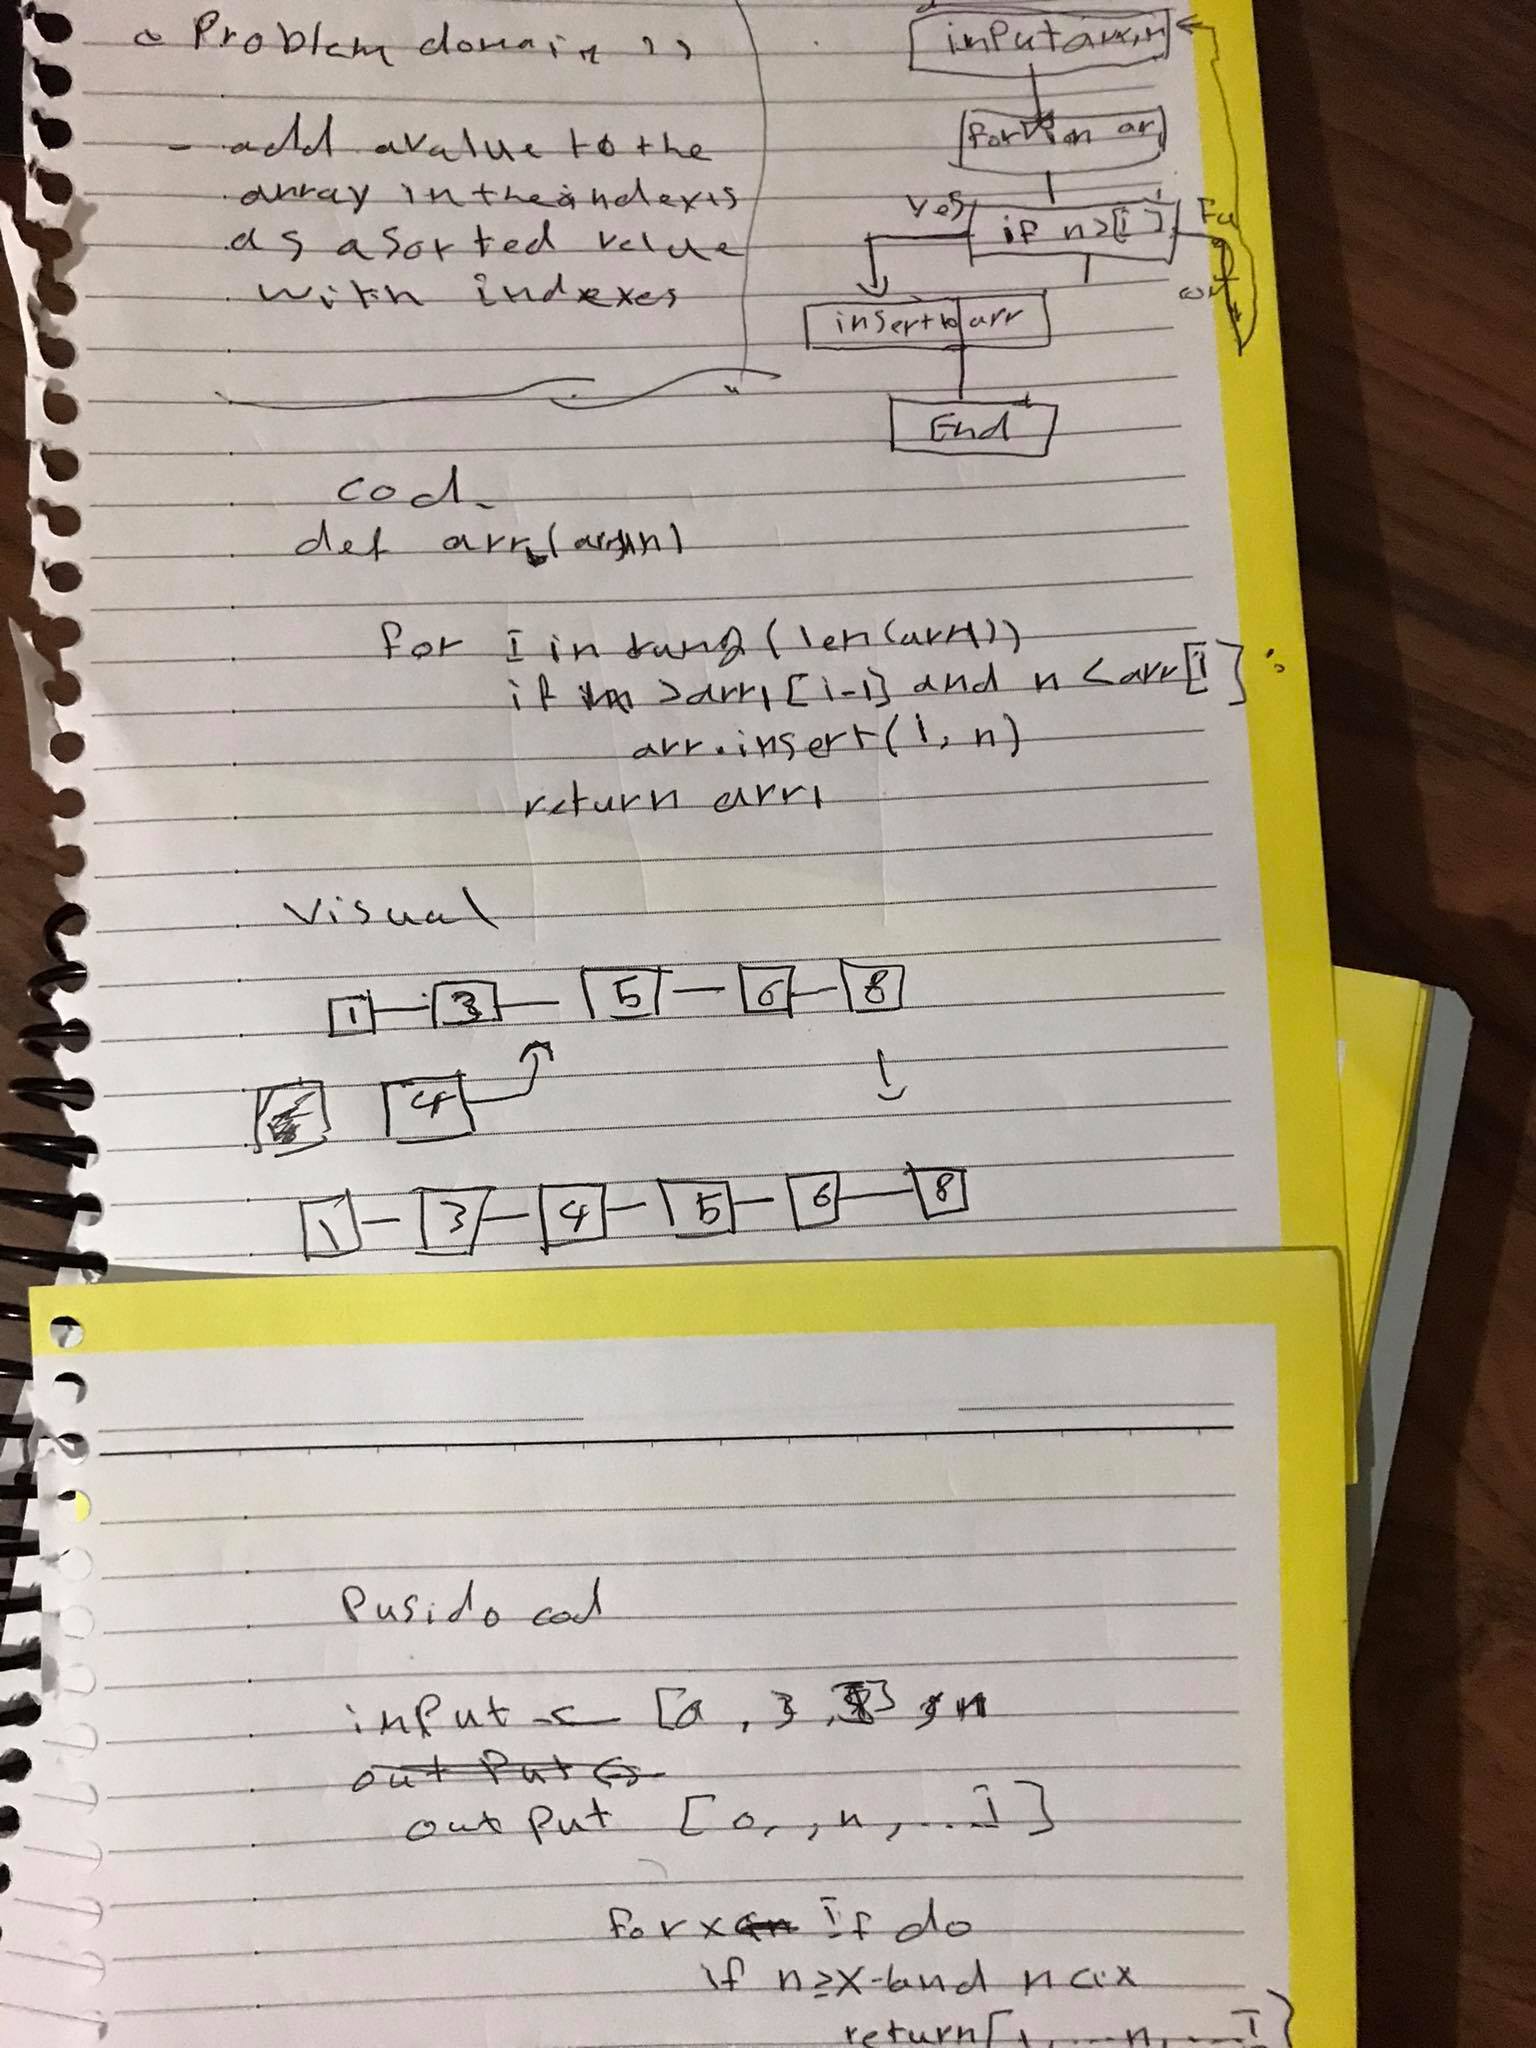 Problem domain
- add a value to the
array in the indexis
as a sorted value
with indexes
input arr, n
for i in ar
Yes
if n > [i]
insert to arr
End
cod
def arr1(arr1, n)
for I in rang (len(arr1))
if n > arr1 [i-1] and n < arr[i] :
arr.insert(i, n)
return arr1
Visual
1 3 5 6 8
4
1 3 4 5 6 8
Pusido cod
input <- [0, 3, ], n
out put
out put [0, , n, ... i]
for x if do
if n ≥ x-1 and n < x
return [1, ... n, ... I]